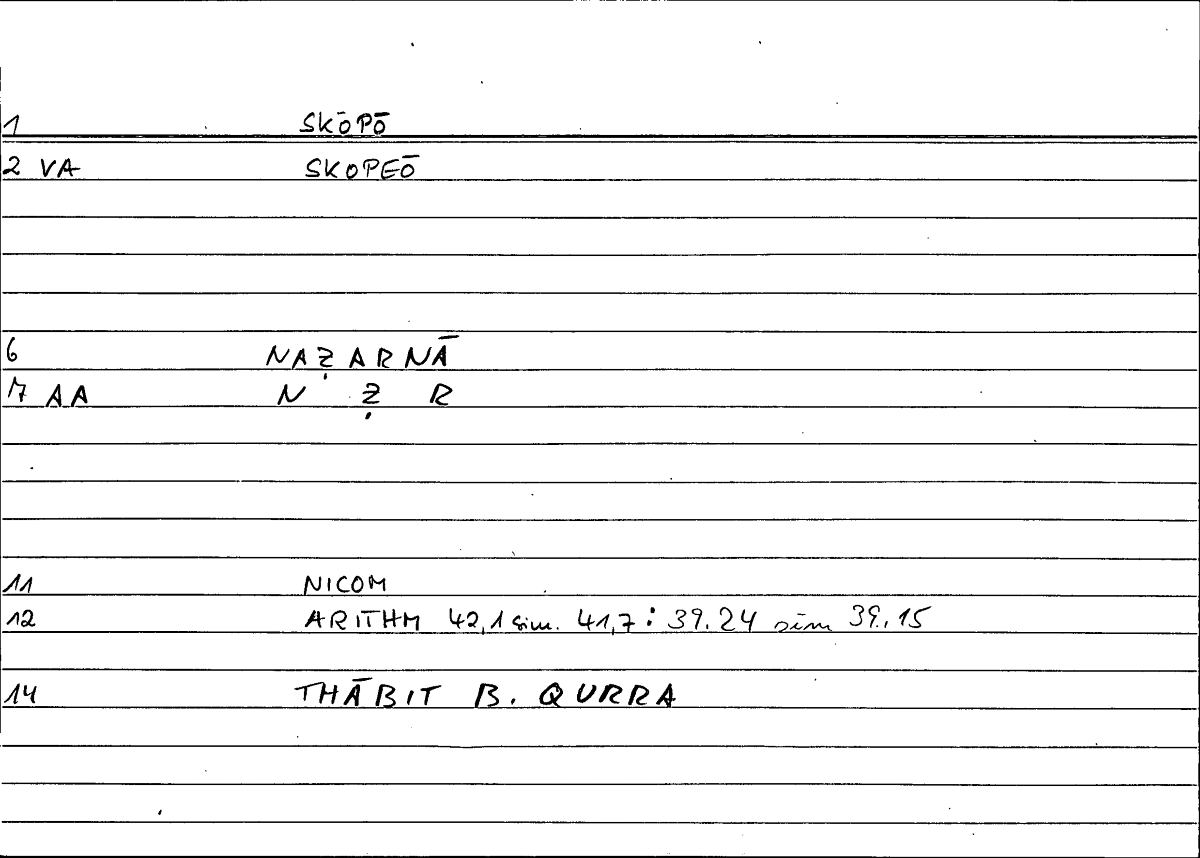 1 SKŌPŌ
2 VA SKOPEŌ
6 NAẒARNĀ
7 AA N Ẓ R
11 NICOM
12 ARITHM 42,1 sim. 41,7 : 39.24 sim 39.15
14 THĀBIT B. QURRA